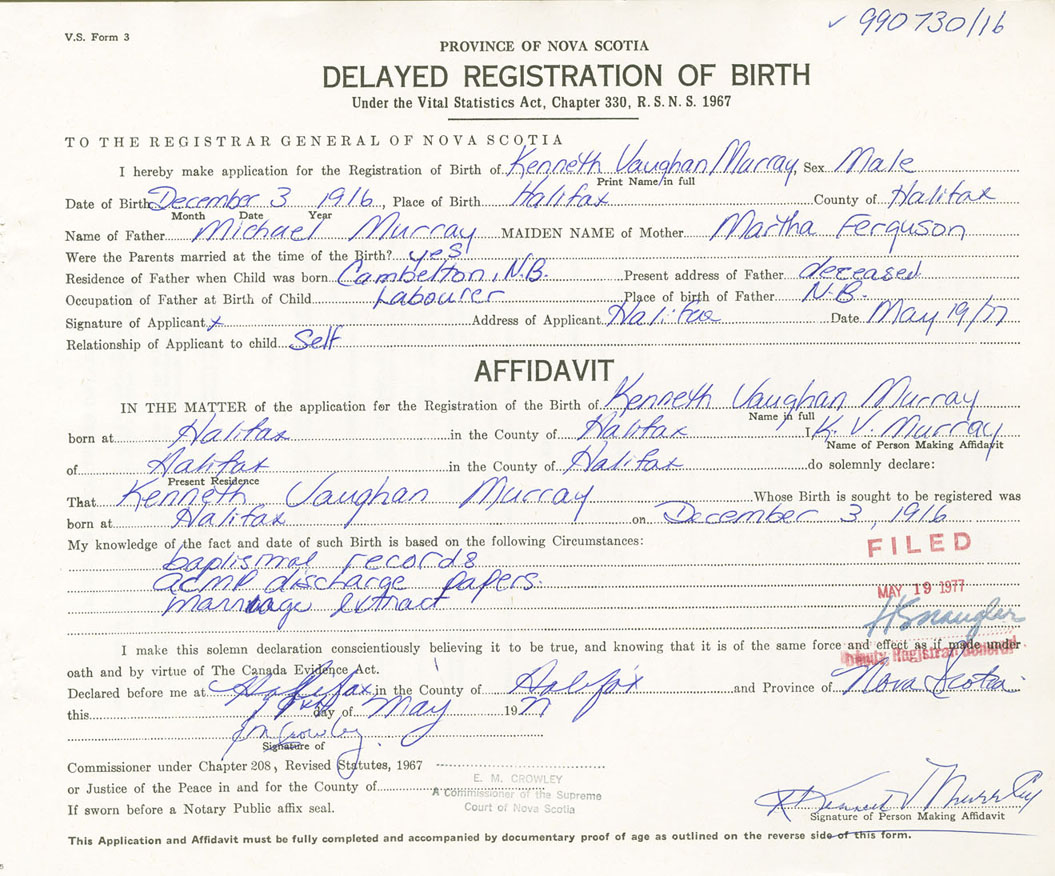 ✓ 990730/16
V.S. Form 3
PROVINCE OF NOVA SCOTIA
DELAYED REGISTRATION OF BIRTH
Under the Vital Statistics Act, Chapter 330, R.S.N.S. 1967
TO THE REGISTRAR GENERAL OF NOVA SCOTIA
I hereby make application for the Registration of Birth of Kenneth Vaughan Murray, Sex Male
Print Name in full
Date of Birth December 3 1916, Place of Birth Halifax County of Halifax
Month Date Year
Name of Father Michael Murray MAIDEN NAME of Mother Martha Ferguson
Were the Parents married at the time of the Birth? yes
Residence of Father when Child was born Cambelton, N.B. Present address of Father deceased
Occupation of Father at Birth of Child Labourer Place of birth of Father N.B.
Signature of Applicant x Address of Applicant Halifax Date May 19/77
Relationship of Applicant to child Self
AFFIDAVIT
IN THE MATTER of the application for the Registration of the Birth of Kenneth Vaughan Murray
Name in full
born at Halifax in the County of Halifax I K. V. Murray
Name of Person Making Affidavit
of Halifax in the County of Halifax do solemnly declare:
Present Residence
That Kenneth Vaughan Murray Whose Birth is sought to be registered was
born at Halifax on December 3, 1916
My knowledge of the fact and date of such Birth is based on the following Circumstances:
baptismal records
acmp discharge papers.
marriage extract
FILED
MAY 19 1977
HSnaugler
Deputy Registrar General
I make this solemn declaration conscientiously believing it to be true, and knowing that it is of the same force and effect as if made under
oath and by virtue of The Canada Evidence Act.
Declared before me at Halifax in the County of Halifax and Province of Nova Scotia
this 19th day of May 1977
E M Crowley.
Signature of
Commissioner under Chapter 208, Revised Statutes, 1967
or Justice of the Peace in and for the County of
If sworn before a Notary Public affix seal.
E. M. CROWLEY
A Commissioner of the Supreme
Court of Nova Scotia
X Kenneth V Murray
Signature of Person Making Affidavit
This Application and Affidavit must be fully completed and accompanied by documentary proof of age as outlined on the reverse side of this form.